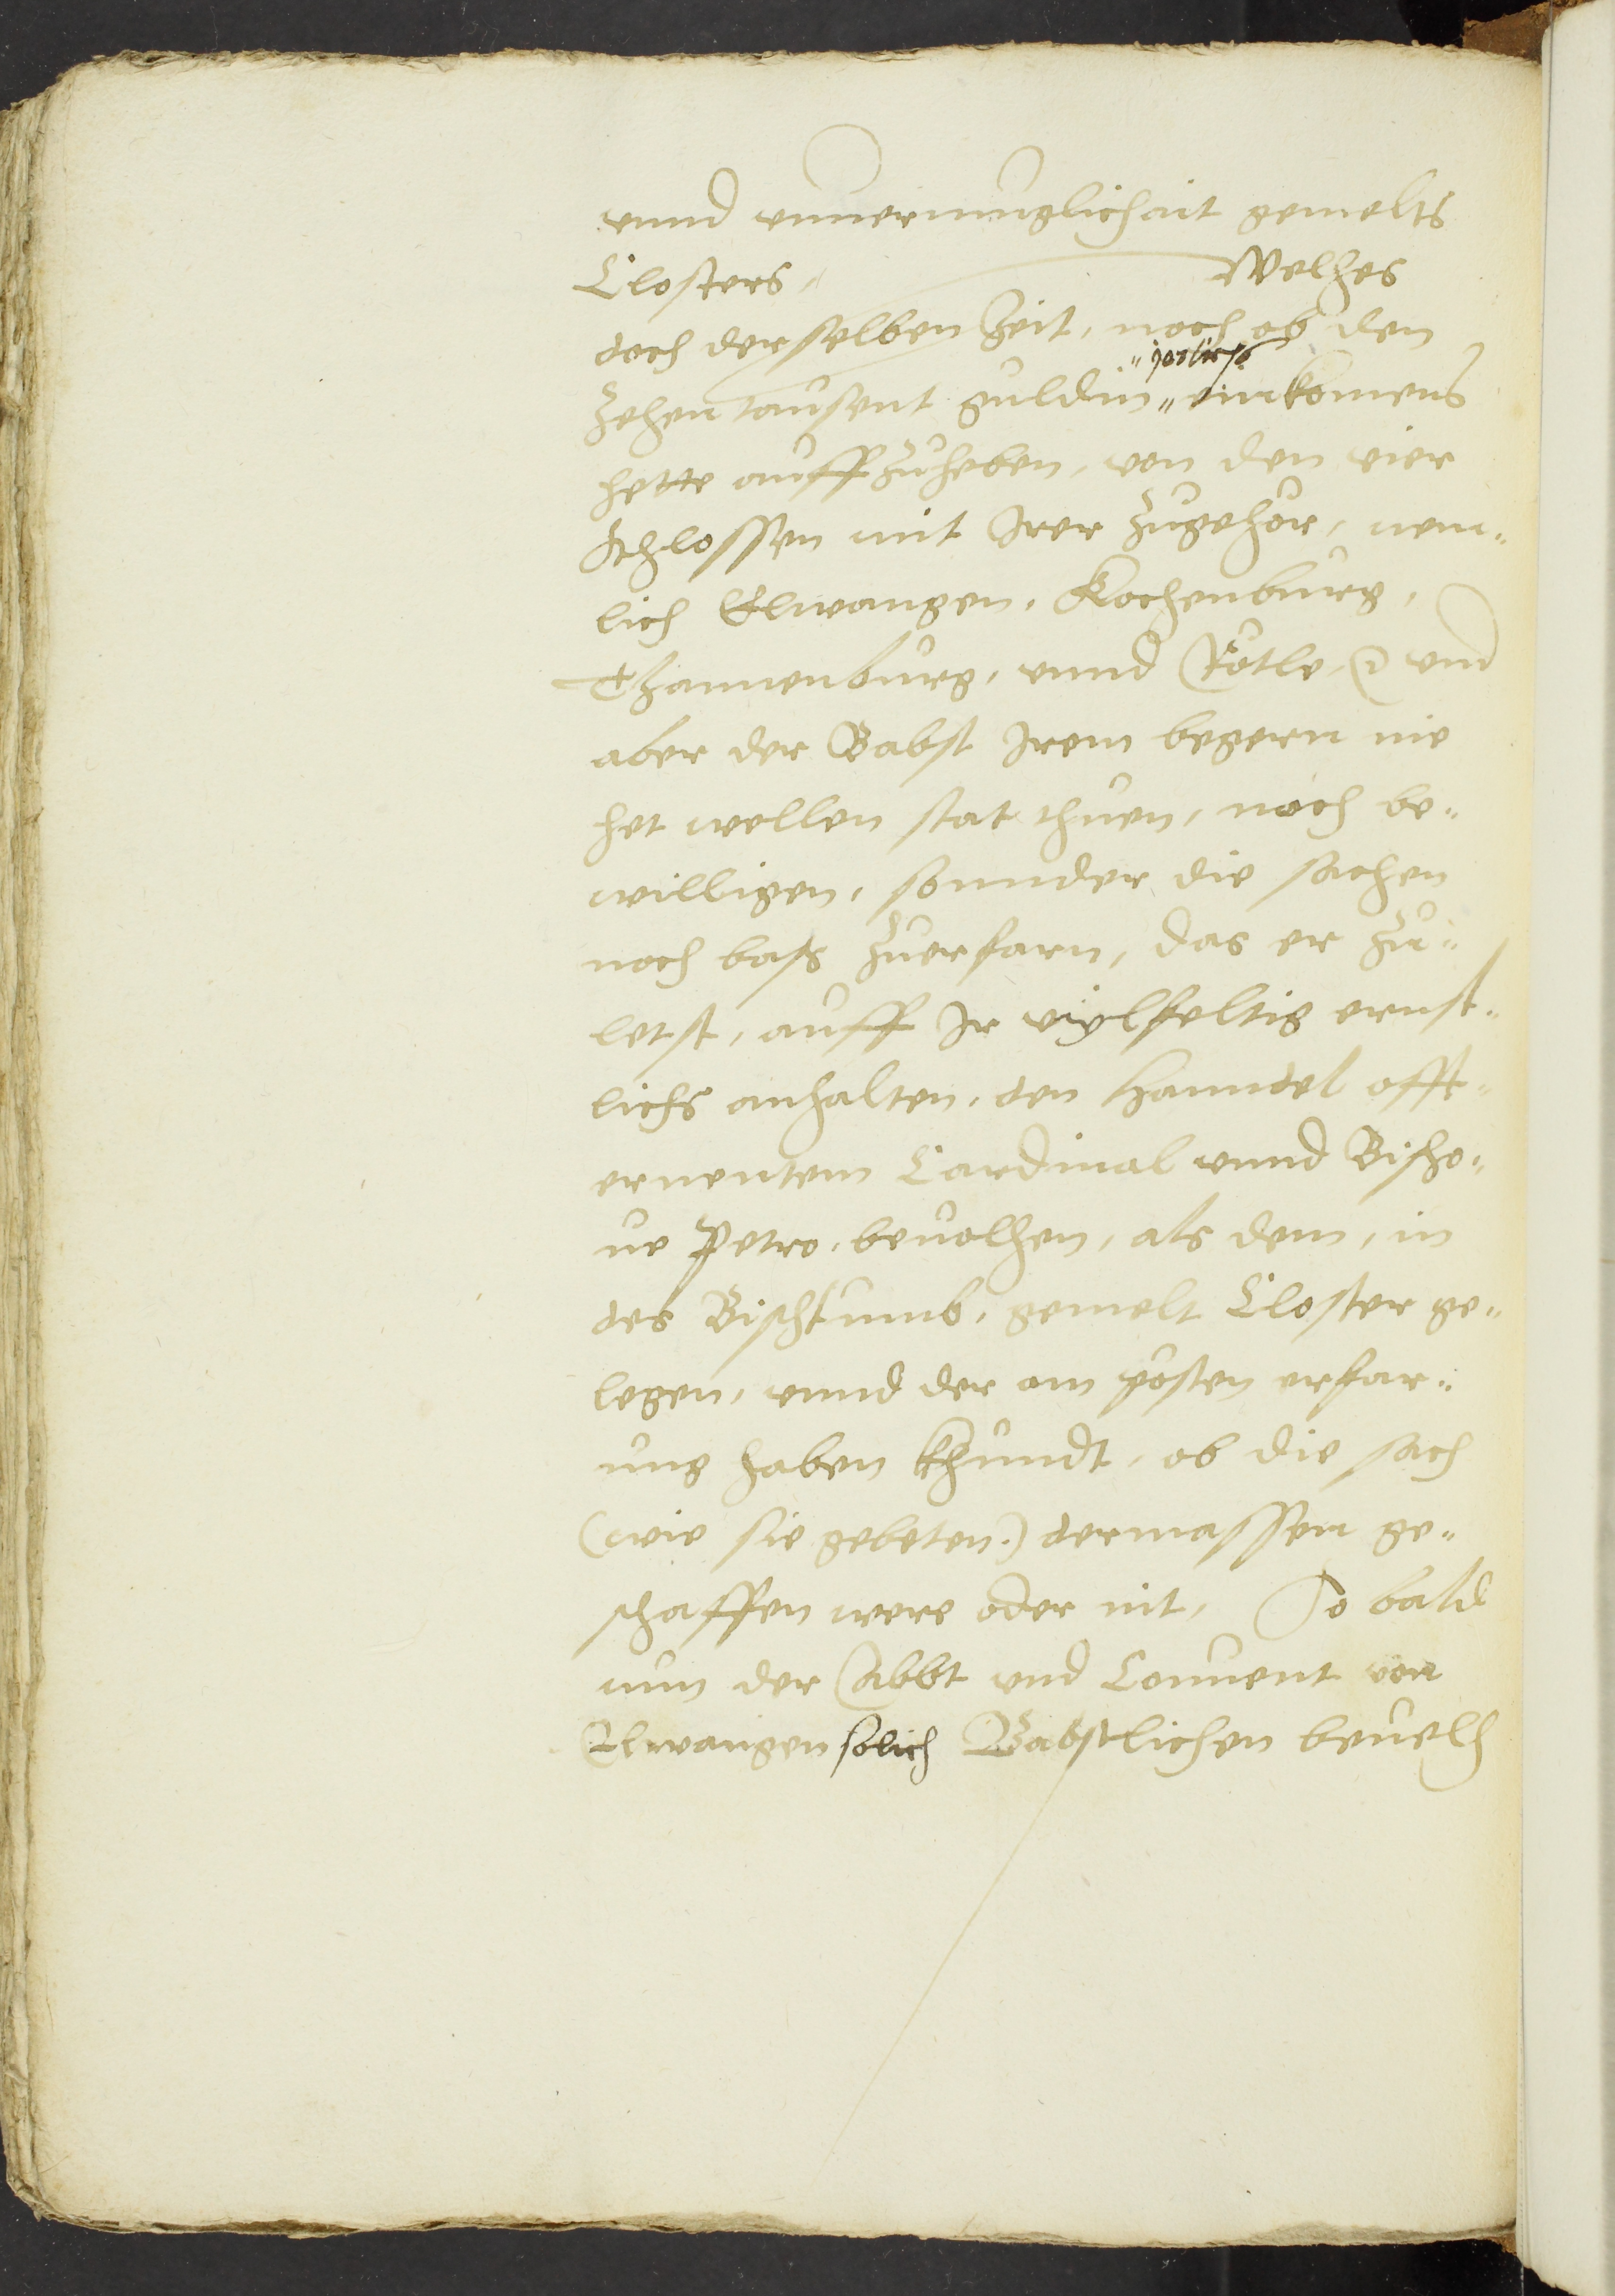 vnnd vnuermuglichait gemelts
Closters, Welhes
doch derselben Zeit, noch ob den
"järlichs
Zehen tausent guldin " einkomens
hette auffzuheben, von den vier
Schlossen mit Irer Zugehör, nem"
lich Elwangen, Kochenburg,
Thannenburg, vnnd Rötle, vnd
aber der Babst Irem begern nie
het wellen stat thuen, noch be"
willigen, sonnder die sachen
noch bass Zuerfarn, das er Zu"
letst, auff Ir vylfeltig ernst"
lichs anhalten, den Hanndel offt"
ernentem Cardinal vnnd Bischo"
ue Petro, beuolhen, als dem, in
des Bischtumb, gemelt Closter ge"
legen, vnnd der am postem erfar"
ung haben khundt, ob die sach
(wie sie gebeten) dermassen ge"
schaffen were oder nit, So bald
nun der Abbt vnd Conuent von
Elwangen solich Babstlichen beuelh